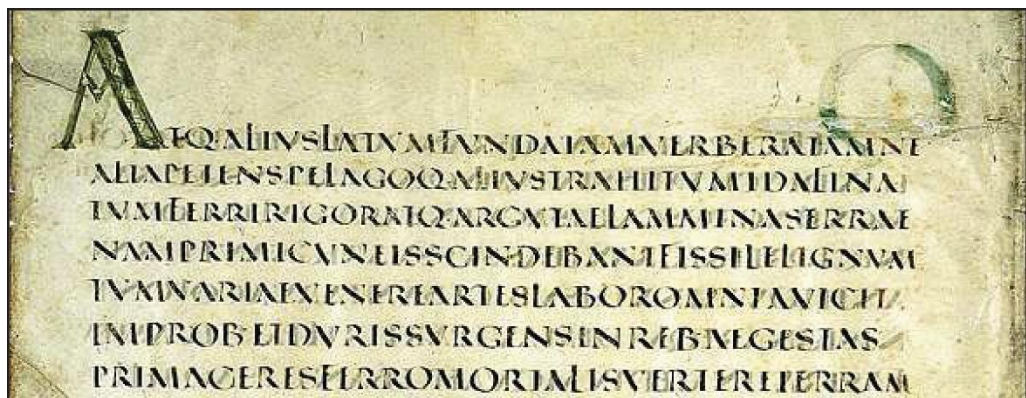 ATQALIVSLATVMFVNDAIAMVERBERATAMNE
ALTAPETENSPELAGOQALIVSTRAHITVMIDALINA
TVMFERRIRIGORATQARGVTAELAMMINASERRAE
NAMPRIMICVNEISSCINDEBANTFISSILELIGNVM
TVMVARIAEVENEREARTESLABOROMNIAVICIT
IMPROB·ETDVRISSVRGENSINREB·EGESTAS
PRIMACERESFERROMORTALISVERTERETERRAM